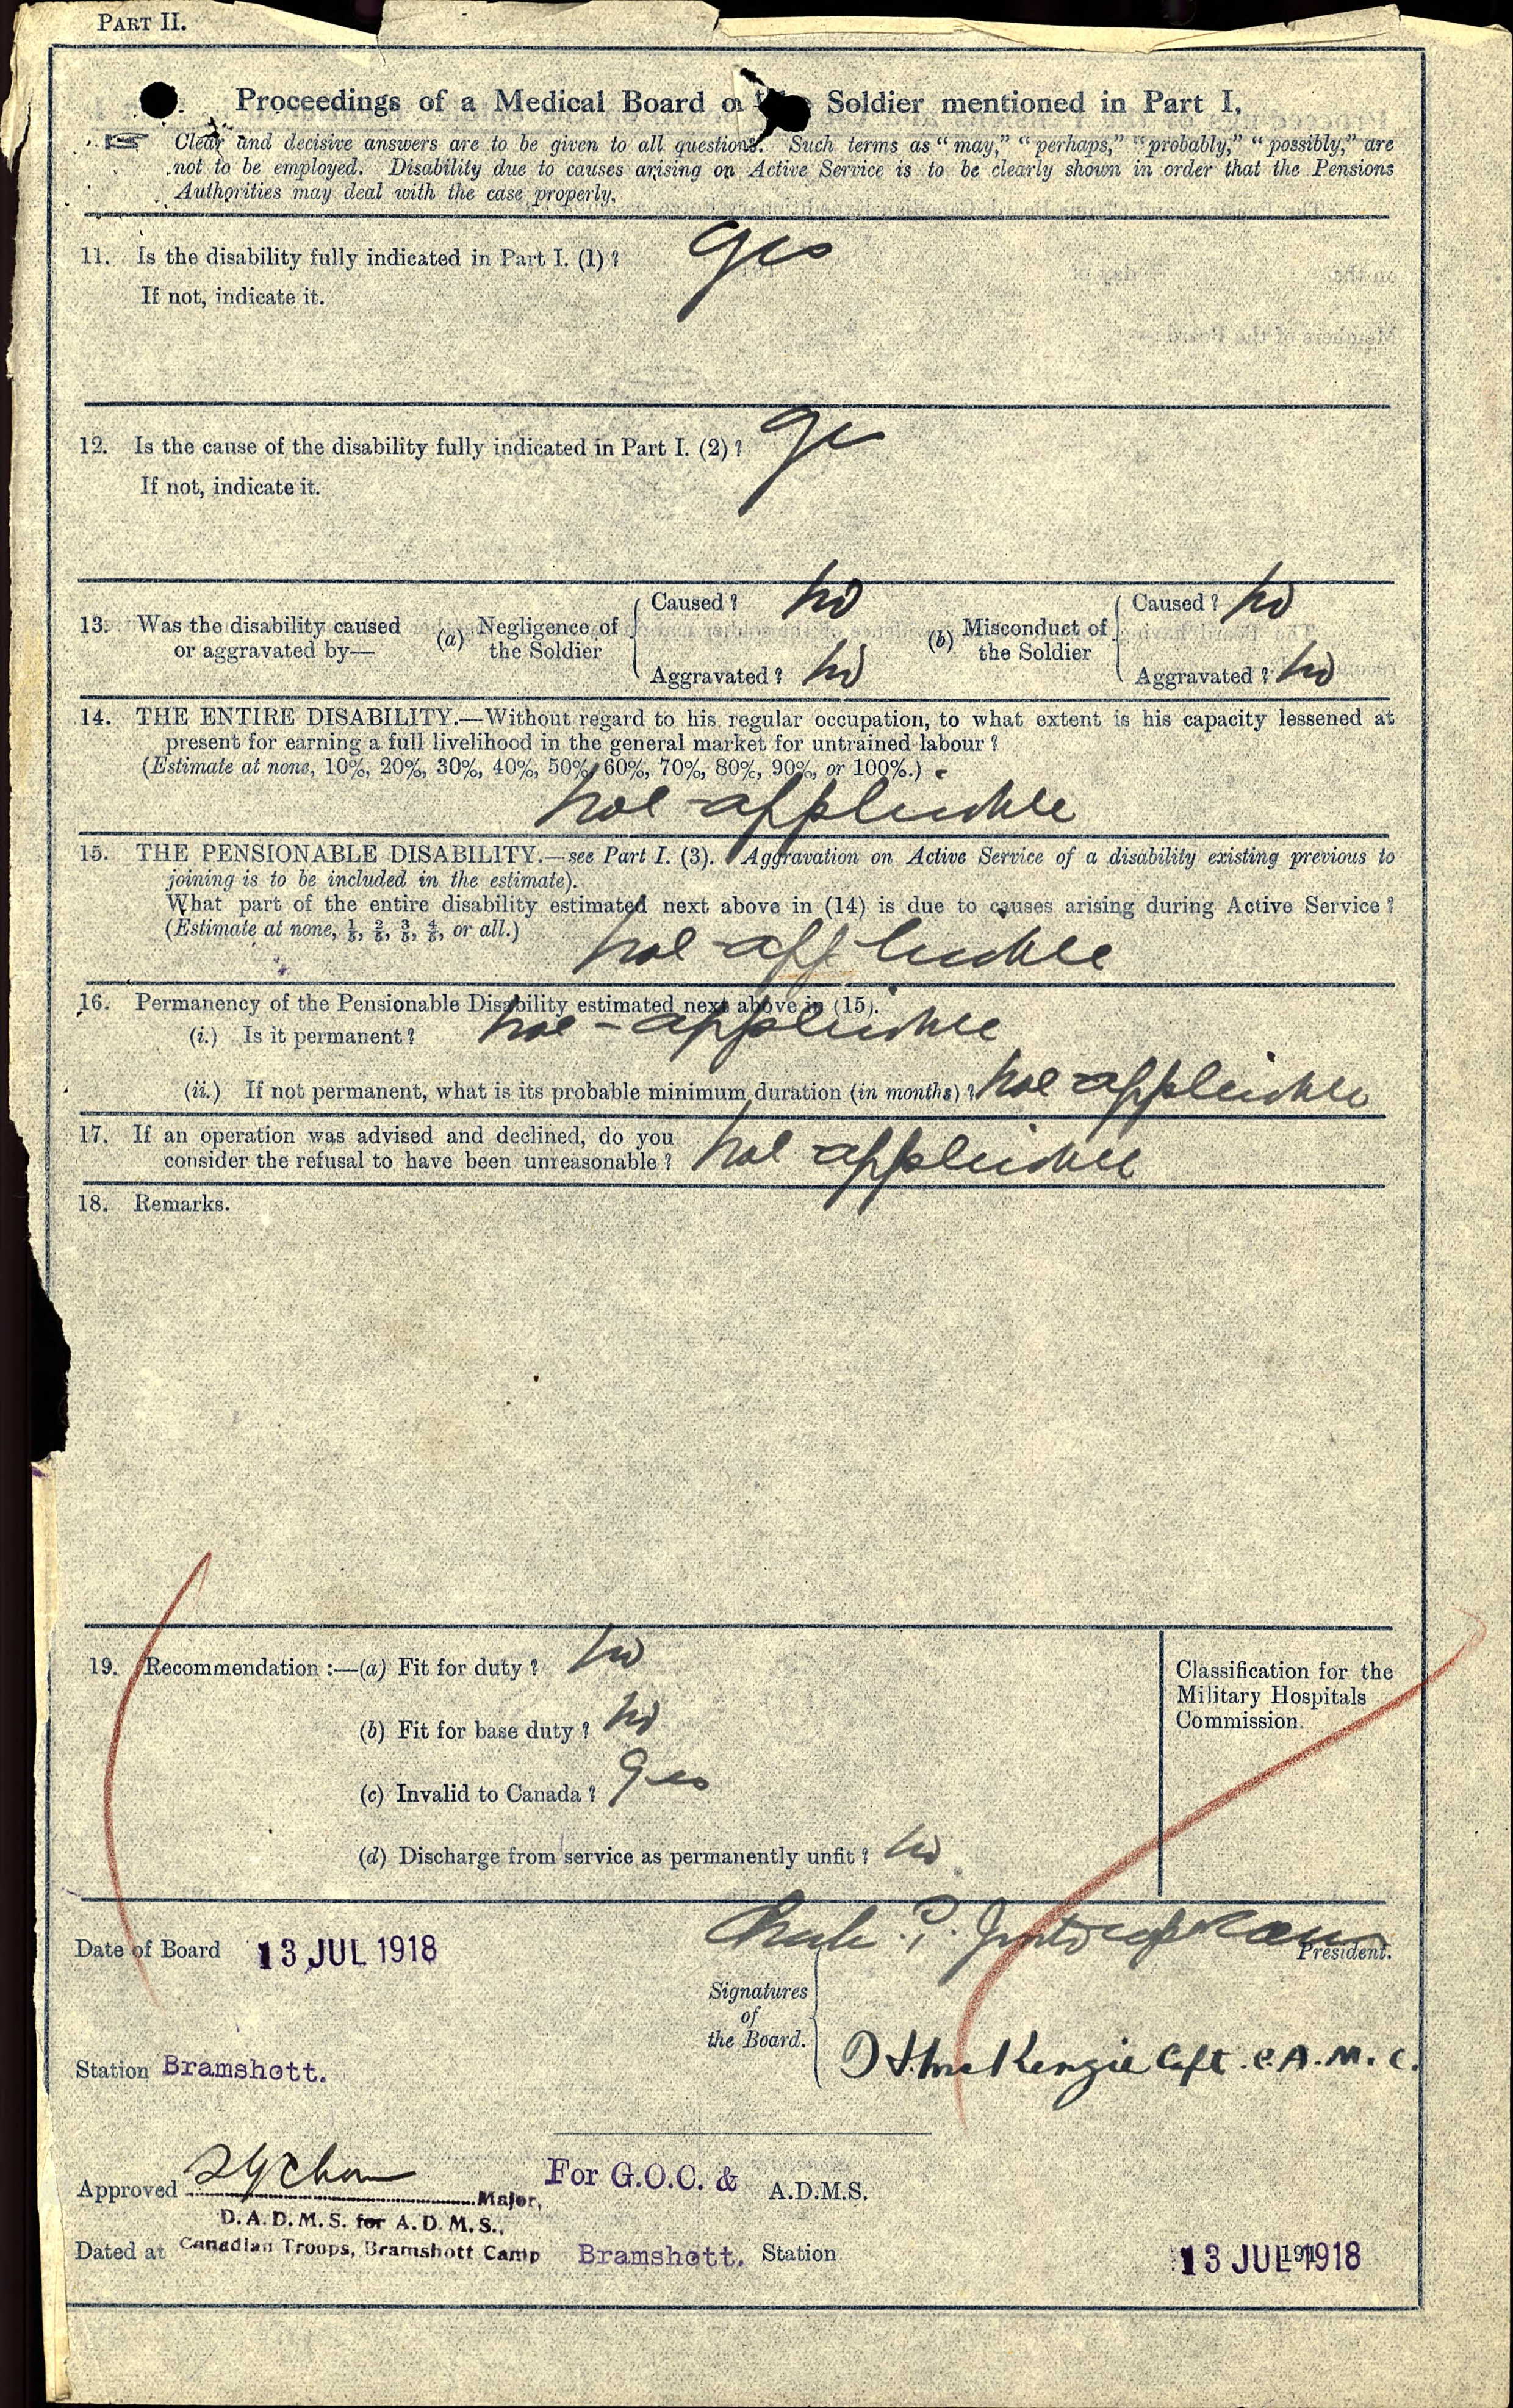 PART II.
Proceedings of a Medical Board on the Soldier mentioned in Part I.
Clear and decisive answers are to be given to all questions. Such terms as "may," "perhaps," "probably," "possibly," are
not to be employed. Disability due to causes arising on Active Service is to be clearly shown in order that the Pensions
Authorities may deal with the case properly.
11. Is the disability fully indicated in Part I. (1)? Yes
If not, indicate it.
12. Is the cause of the disability fully indicated in Part I. (2)? Yes
If not, indicate it.
13. Was the disability caused or aggravated by—
(a) Negligence of the Soldier
Caused? No
Aggravated? No
(b) Misconduct of the Soldier
Caused? No
Aggravated? No
14. THE ENTIRE DISABILITY.—Without regard to his regular occupation, to what extent is his capacity lessened at
present for earning a full livelihood in the general market for untrained labour?
(Estimate at none, 10%, 20%, 30%, 40%, 50%, 60%, 70%, 80%, 90%, or 100%.)
not applicable
15. THE PENSIONABLE DISABILITY.—see Part I. (3). Aggravation on Active Service of a disability existing previous to
joining is to be included in the estimate).
What part of the entire disability estimated next above in (14) is due to causes arising during Active Service?
(Estimate at none, 1/5, 2/5, 3/5, 4/5, or all.) not applicable
16. Permanency of the Pensionable Disability estimated next above in (15).
(i.) Is it permanent? not applicable
(ii.) If not permanent, what is its probable minimum duration (in months)? not applicable
17. If an operation was advised and declined, do you
consider the refusal to have been unreasonable? not applicable
18. Remarks.
19. Recommendation :—(a) Fit for duty? No
(b) Fit for base duty? No
(c) Invalid to Canada? Yes
(d) Discharge from service as permanently unfit? No.
Classification for the
Military Hospitals
Commission.
Date of Board 13 JUL 1918
President.
Signatures
of
the Board.
McKenzie Capt. C.A.M.C.
Station Bramshott.
Approved Major, For G.O.C. & A.D.M.S.
D.A.D.M.S. for A.D.M.S.,
Dated at Canadian Troops, Bramshott Camp Bramshott. Station 13 JUL 1918